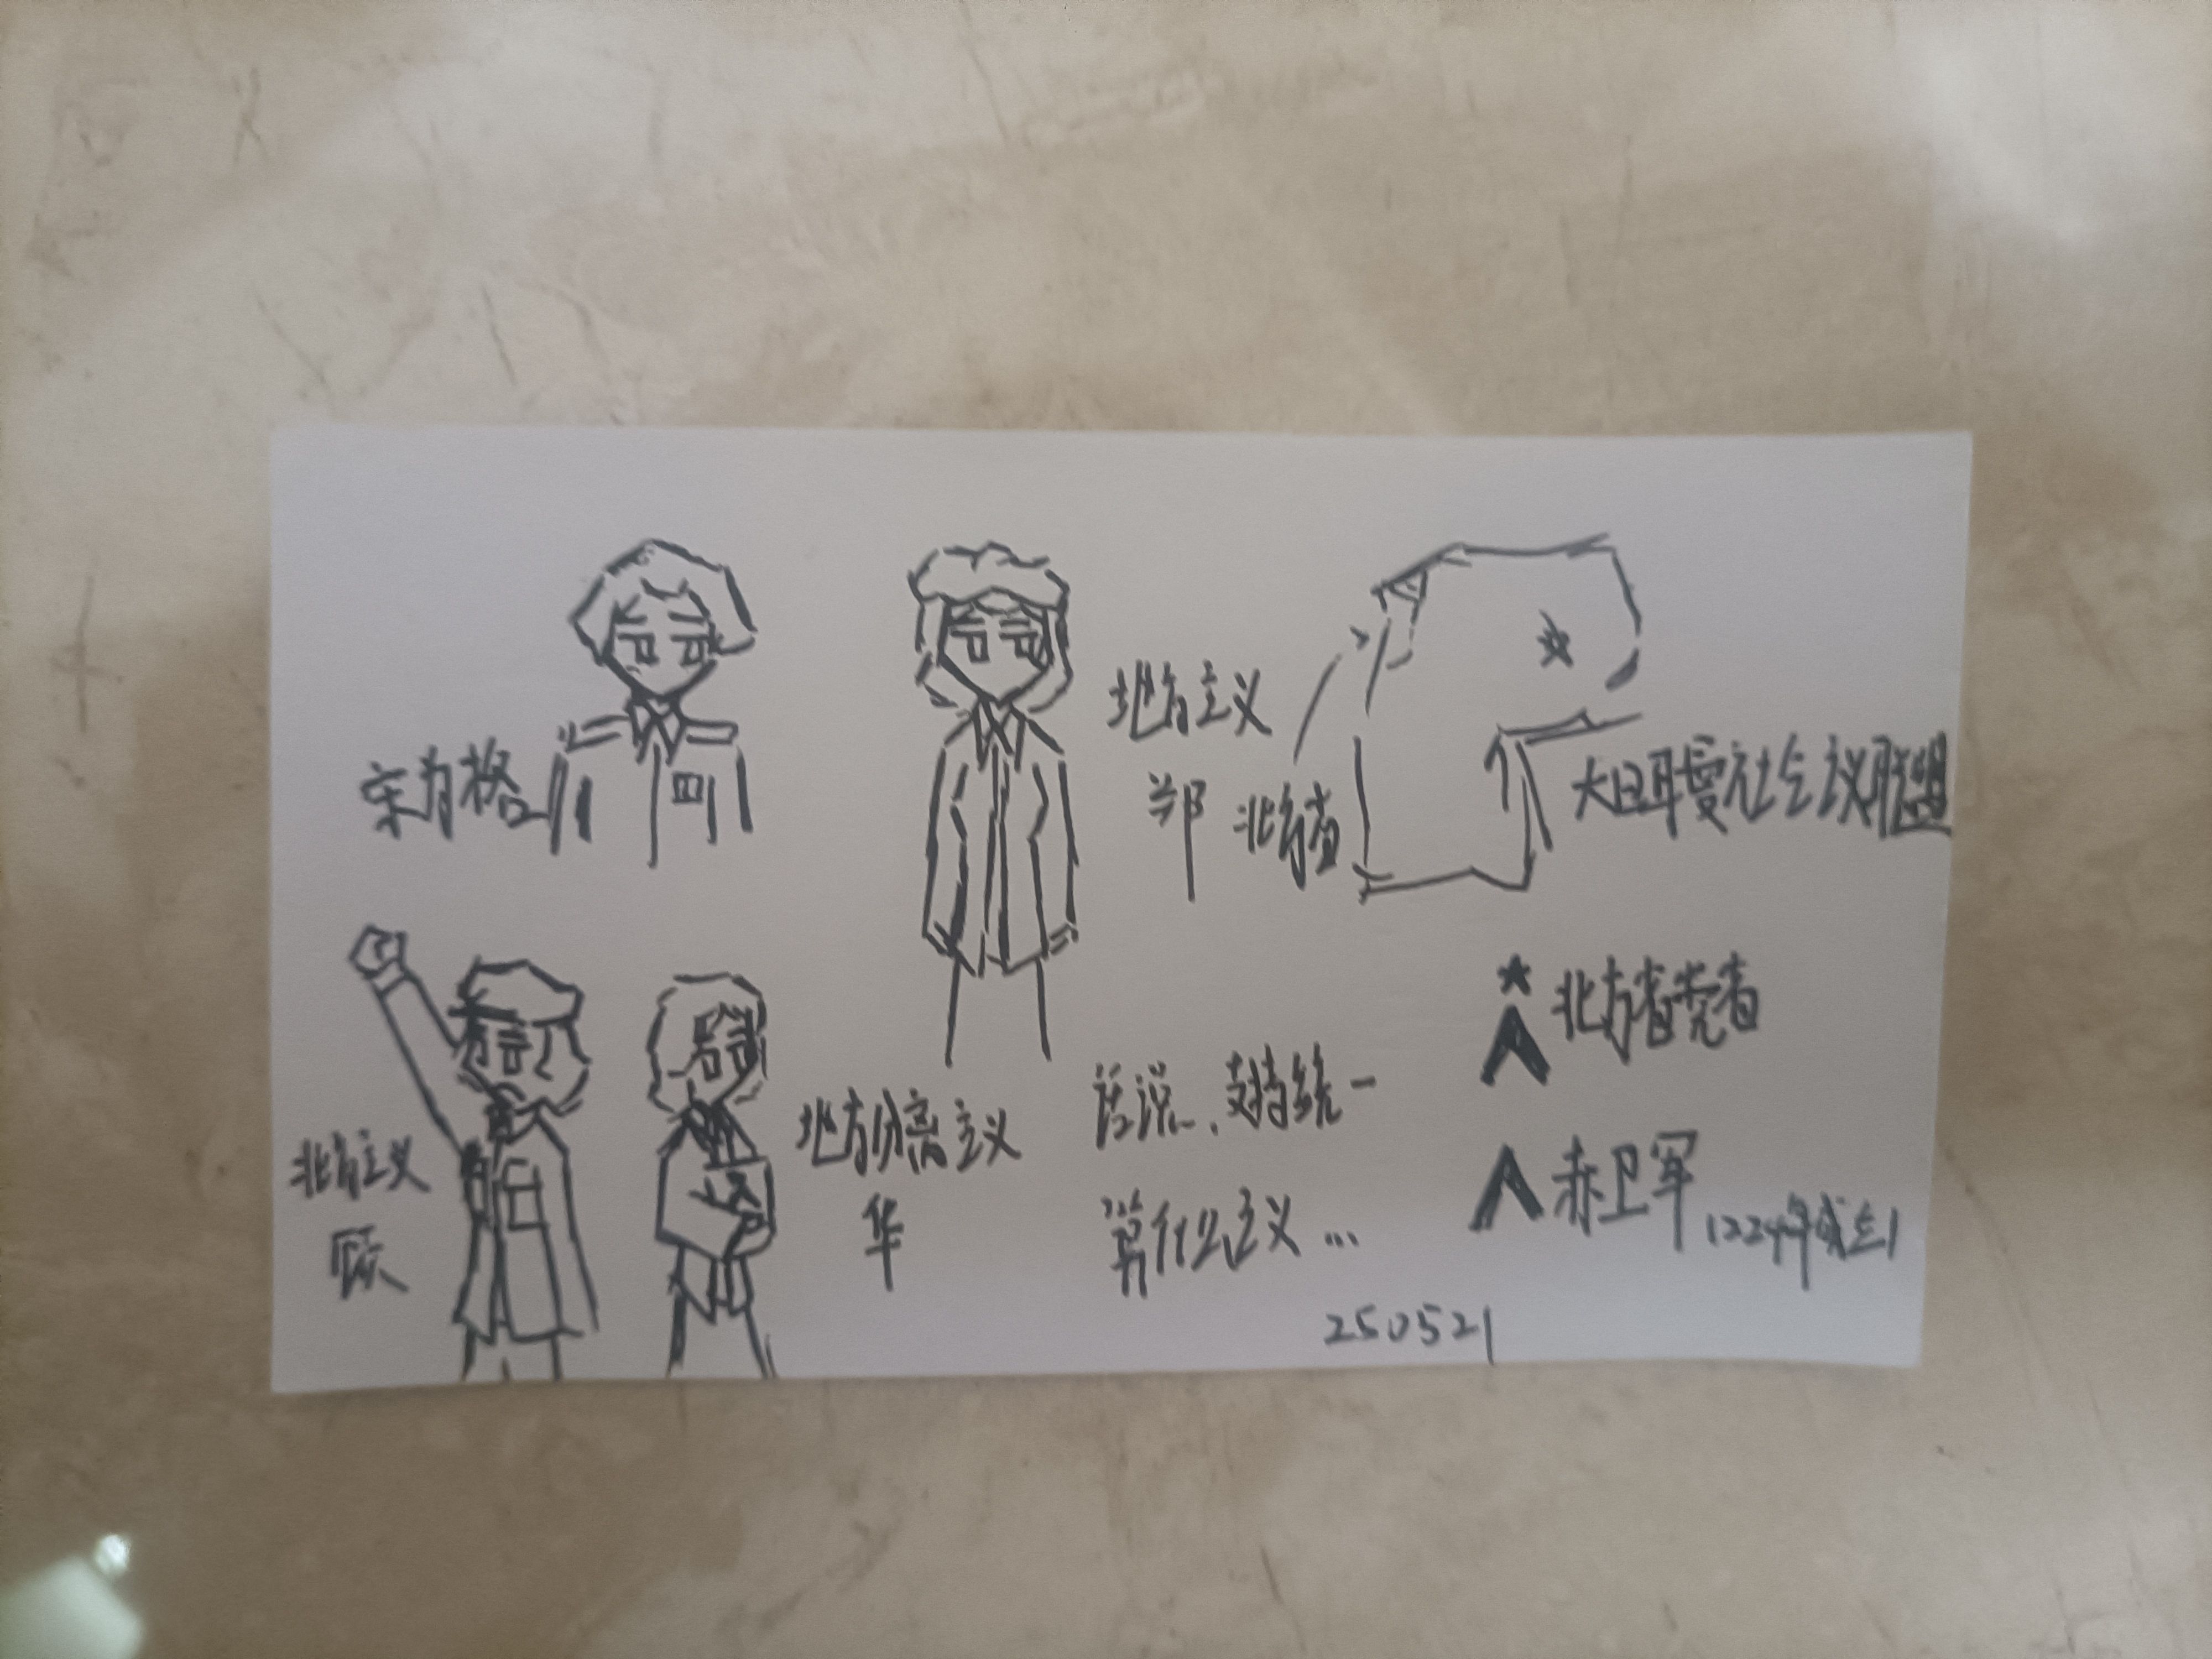 宋为格
地方主义
郑
北方省
大日耳曼社会主义联盟
北方主义
顾
地方分离主义
华
话说、支持统一
算什么主义…
北方省党省
赤卫军
1224年成立
250521